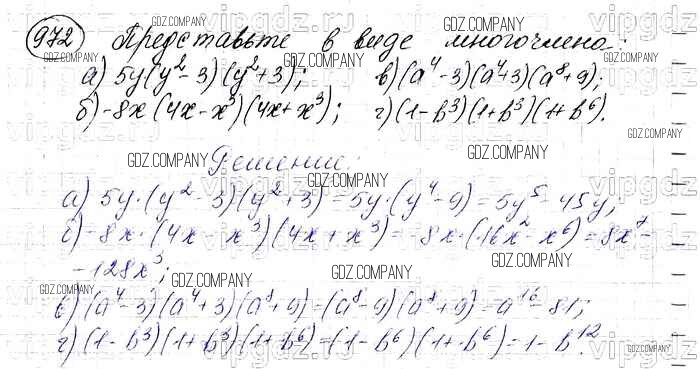 972 Представьте в виде многочлена:
а) 5y(y²-3)(y²+3); в) (a⁴-3)(a⁴+3)(a⁸+9);
б) -8x(4x-x³)(4x+x³); г) (1-b³)(1+b³)(1+b⁶).
Решение:
а) 5y·(y²-3)(y²+3)=5y·(y⁴-9)=5y⁵-45y;
б) -8x·(4x-x³)(4x+x³)=-8x·(16x²-x⁶)=8x⁷-
-128x³;
в) (a⁴-3)(a⁴+3)(a⁸+9)=(a⁸-9)(a⁸+9)=a¹⁶-81;
г) (1-b³)(1+b³)(1+b⁶)=(1-b⁶)(1+b⁶)=1-b¹².
GDZ.COMPANY
vipgdz.ru